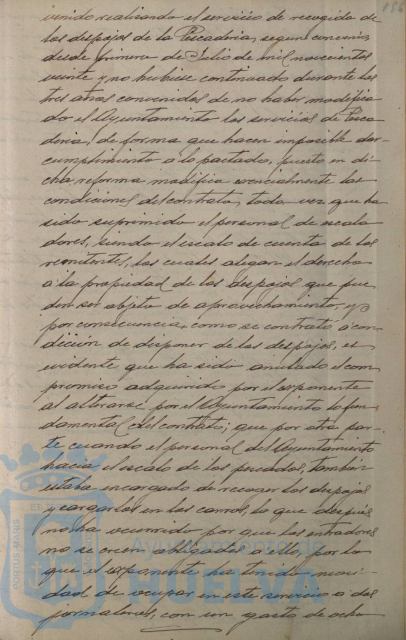 156
venido realizando el servicio de recogida de
los despojos de la Pescadería, según convenio,
desde primero de Julio de mil novecientos
veinte y no hubiese continuado durante los
tres años convenidos de no haber modifica
do el Ayuntamiento los servicios de Pesca
dería, de forma que hacen imposible dar
cumplimiento a lo pactado, puesto en di
cha reforma modifica esencialmente las
condiciones del contrato, toda vez que ha
sido suprimido el personal de escala
dores, siendo el escalo de cuenta de los
remitentes, los cuales alegan el derecho
a la propiedad de los despojos que pue
den ser objeto de aprovechamiento y
por consecuencia, como se contrató a con
dición de disponer de los despojos, es
evidente que ha sido anulado el com
promiso adquirido por el exponente
al alterarse por el Ayuntamiento lo fun
damental del contrato; que por otra par-
te cuando el personal del Ayuntamiento
hacía el escalo de los pescados, también
estaba encargado de recoger los despojos
y cargarlos en los carros, lo que después
no ha ocurrido por que los entradores
no se creen obligados a ello, por lo
que el exponente ha tenido nece
dad de ocupar en este servicio a dos
jornaleros, con un gasto de ocho
Ayuntamiento de
HUELVA
PORTUS MARIS